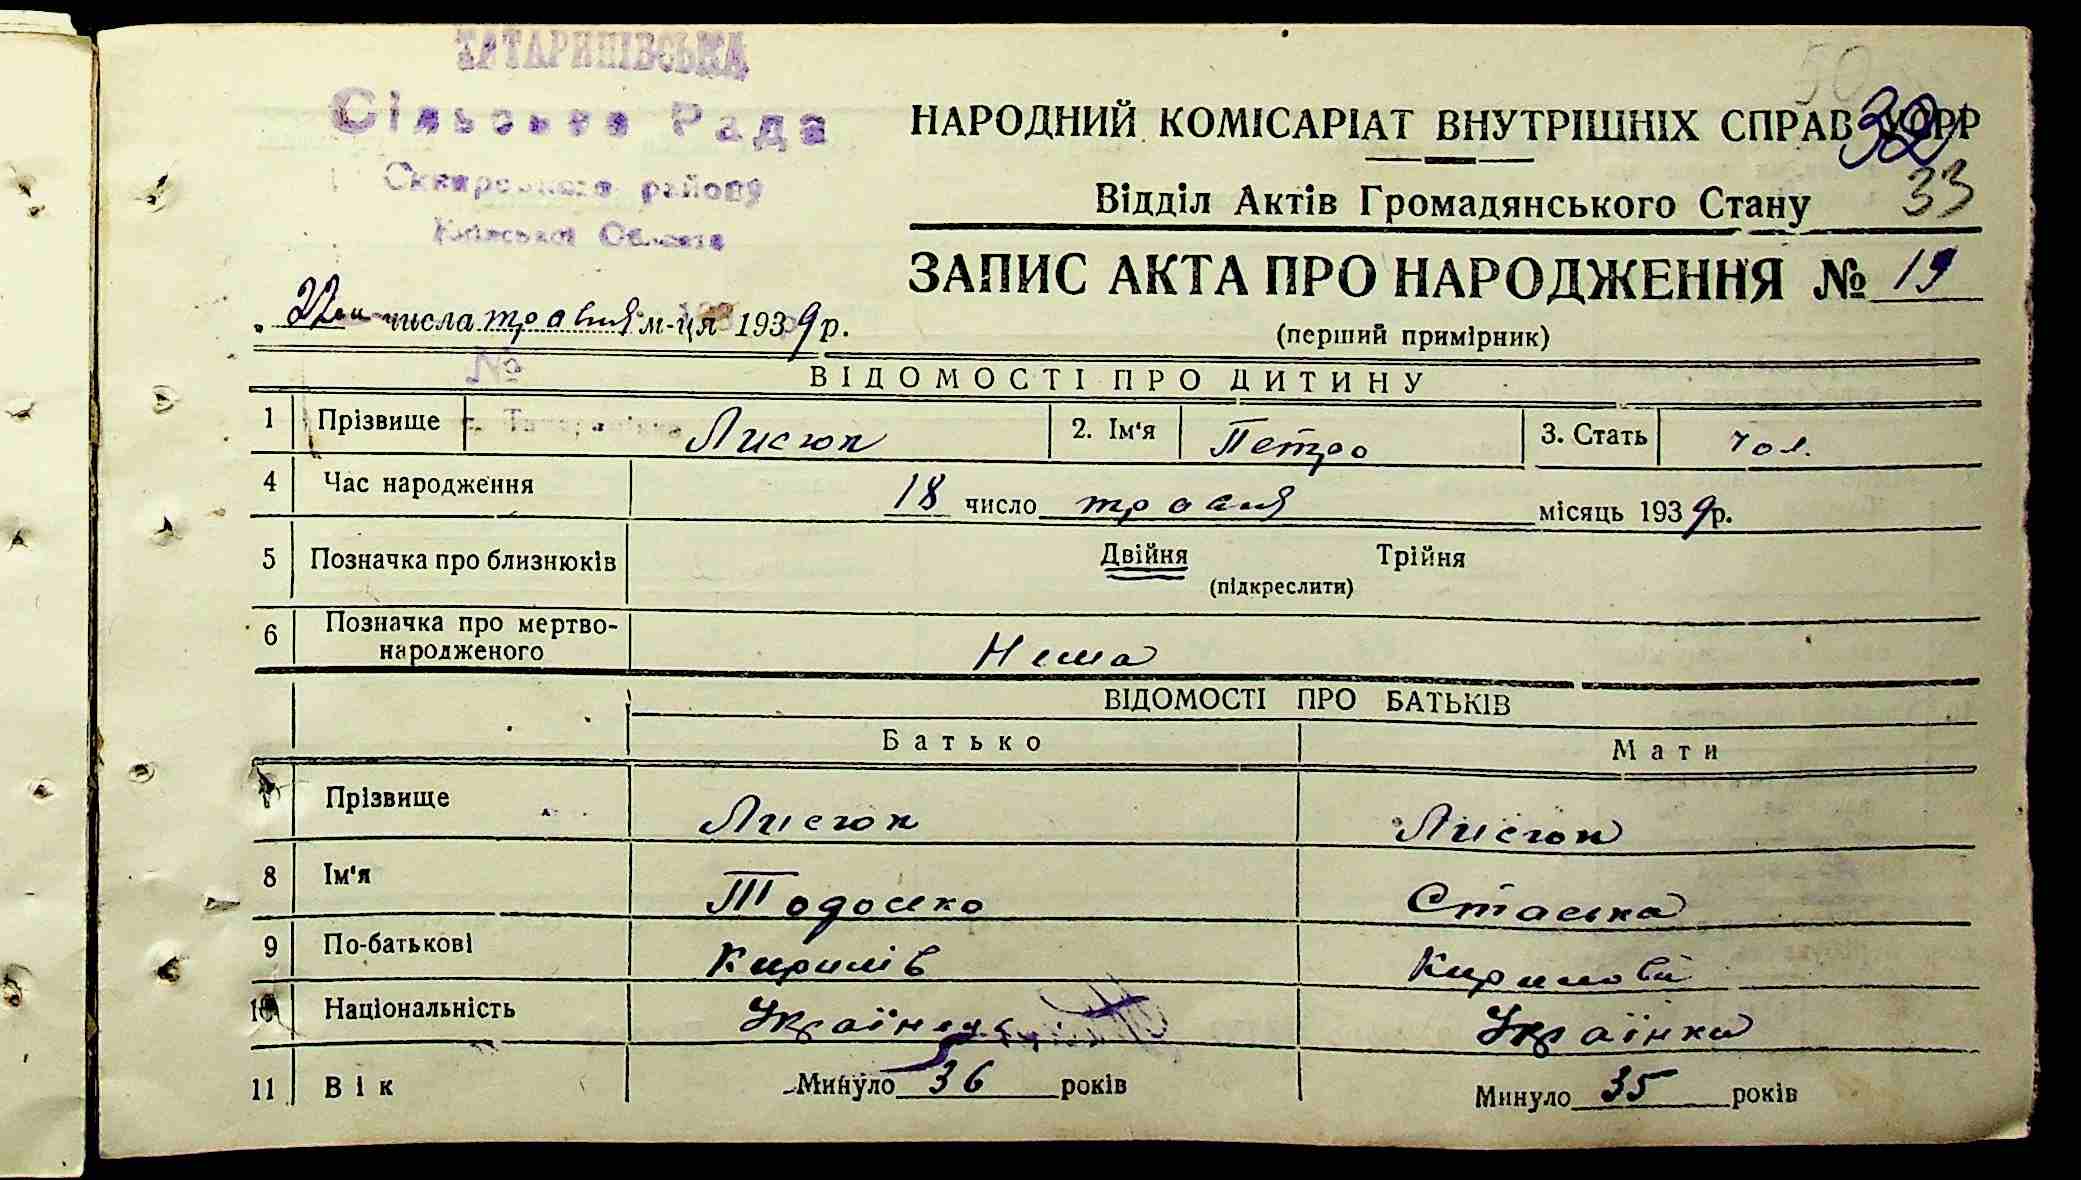 ТАТАРИНІВСЬКА
Сільська Рада
Сквирського району
Київської Області
50
32
33
НАРОДНИЙ КОМІСАРІАТ ВНУТРІШНІХ СПРАВ УСРР
Відділ Актів Громадянського Стану
ЗАПИС АКТА ПРО НАРОДЖЕННЯ № 19
(перший примірник)
22го числа травня м-ця 1939 р.
№
ВІДОМОСТІ ПРО ДИТИНУ
1 Прізвище Лисюк 2. Ім'я Петро 3. Стать чол.
4 Час народження 18 число травня місяць 1939 р.
5 Позначка про близнюків Двійня Трійня
(підкреслити)
6 Позначка про мертво-
народженого Нема
ВІДОМОСТІ ПРО БАТЬКІВ
Батько Мати
7 Прізвище Лисюк Лисюк
8 Ім'я Тодоско Стаська
9 По-батькові Кирилів Кирилові
10 Національність Українець Українка
11 Вік Минуло 36 років Минуло 35 років